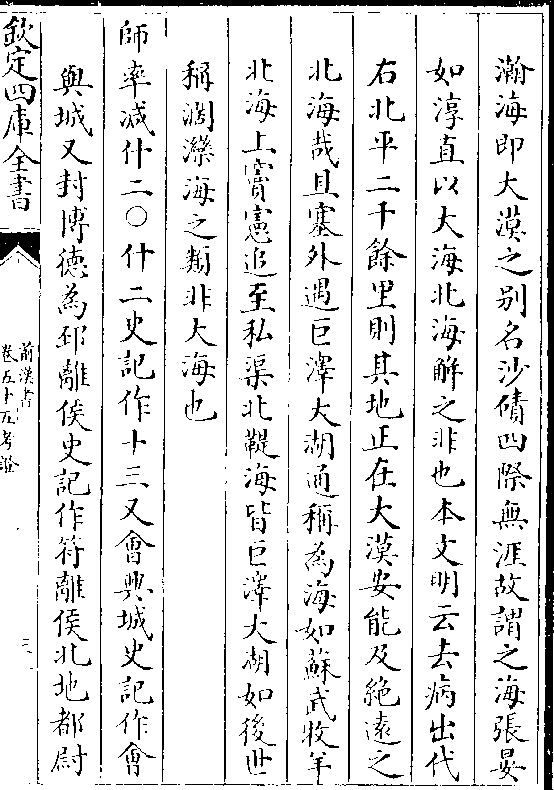 瀚海即大漠之别名沙磧四際無涯故謂之海張晏
如淳直以大海北海解之非也本文明云去病出代
右北平二千餘里則其地正在大漠安能及絶遠之
北海哉且塞外遇巨澤大湖通稱為海如蘇武牧羊
北海上竇憲追至私渠北鞮海皆巨澤大湖如後世
稱濶灤海之類非大海也
師率减什二○什二史記作十三又會興城史記作會
與城又封博德為邳離侯史記作符離侯北地都尉
欽定四庫全書
前漢書
卷五十五考證